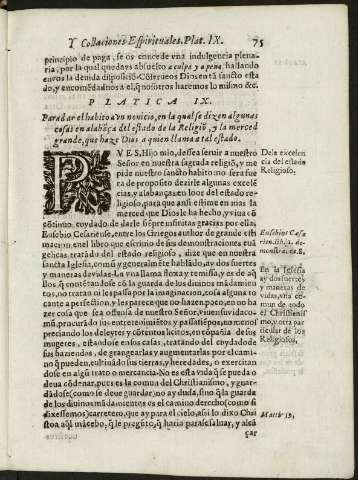 Y Collaciones Espirituales. Plat. IX. 75
principio de paga, se os concede vna indulgencia plena-
ria, por la qual quedays absuelto a culpa y a pena, hallando
en vos la deuida disposiciō. Cōserueos Dios en tā sancto esta
do, y encomēdaldnos a el, q̄ nosotros haremos lo mismo &c.
PLATICA IX.
Para dar el habito a vn nouicio, en la qual se dizen algunas
cosas en alabāça del estado de la Religiō, y la merced
grande, que haze Dios a quien llama a tal estado.
PVES, Hijo mio, dessea seruir a nuestro
Señor en nuestra sagrada religiō, y me
pide nuestro sancto habito: no sera fue
ra de proposito dezirle algunas excelē
cias, y alabanças en loor del estado re-
ligioso, para que ansi estime en mas la
merced que Dios le ha hecho, y viua cō
cōtinuo cuydado de darle siēpre infinitas gracias por ella.
Eusebio Cesariense, entre los Griegos author de grande esti
macion, en el libro que escriuio de sus demonstraciones euā
gelicas tratādo del estado religioso, dize que en nuestra
sancta Iglesia, comū y generalmēte hablādo, ay dos suertes
y maneras de vidas. La vna llama floxa y remissa, y es de aq̄
llos, q̄ contētandose cō la guarda de los diuinos mādamien
tos, no tratan ni les passa por la imaginacion, cosa alguna to
cante a perfection, y les parece que no hazen poco, en no ha
zer cosa que sea offensa de nuestro Señor, viuen su vida co-
mū, procurādo sus entretenimiētos y passatiēpos, no menos
preciando los deleytes y cōtentos licitos, en cōpañia de sus
mugeres, estandose en sus casas, tratando del cuydado de
sus haziendas, de grangearlas y augmentarlas por el cami-
no q̄ pueden, cultiuādo sus tierras, y heredades, o exercitan
dose en algū trato o mercancia. No es esta vida q̄ se pueda o
deua cōdenar, pues es la comun del Christianismo, y guar-
dādose (como se deue guardar) no ay duda, sino q̄ la guarda
de los diuinos mādamientos es el camino derecho (como si
dixessemos) carretero, que ay para el cielo, assi lo dixo Chri
sto a aql̄ mācebo, q̄ le pregūtó, q̄ haria para se saluar, y alcā
çar
De la excelen
cia del estado
Religioso.
Eusebius Cesa
rien. lib. 1. de
monstra. ca. 8.
En la Iglesia
ay dos suertes
y maneras de
vidas, vna co-
mun de todo
el Christianis
mo, y otra par
ticular de los
Religiosos.
Matth. 19.